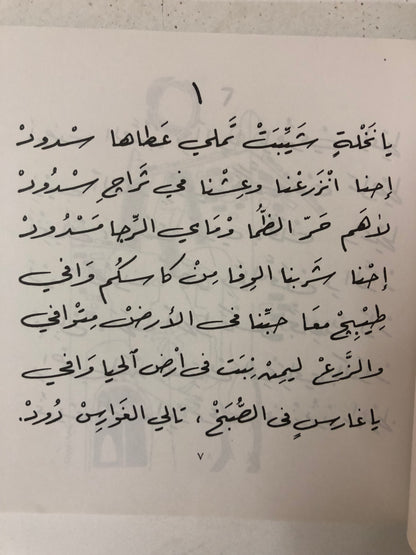 ١
يا نَخْلةٍ شَيِّبَتْ تَملي عَطاها سْدودْ
إحنا انْزَرعْنا وعِشْنا في ثَراچِ سْدُودْ
لاهَم حَرّ الظُّما وْماي الرِّجا مَسْدُودْ
إحْنا شَربنا الوِفا مِنْ كاسكُم وَافي
طِيْبِچْ معَا حبِّنا في الأرضْ مِتْوافي
والزَّرعْ ليمِنْ نِبَت في أرْض الحيا وَافي
يا غارسٍ في الصُّبَخْ ، تالي الغَوارِسْ دُودْ.
٧